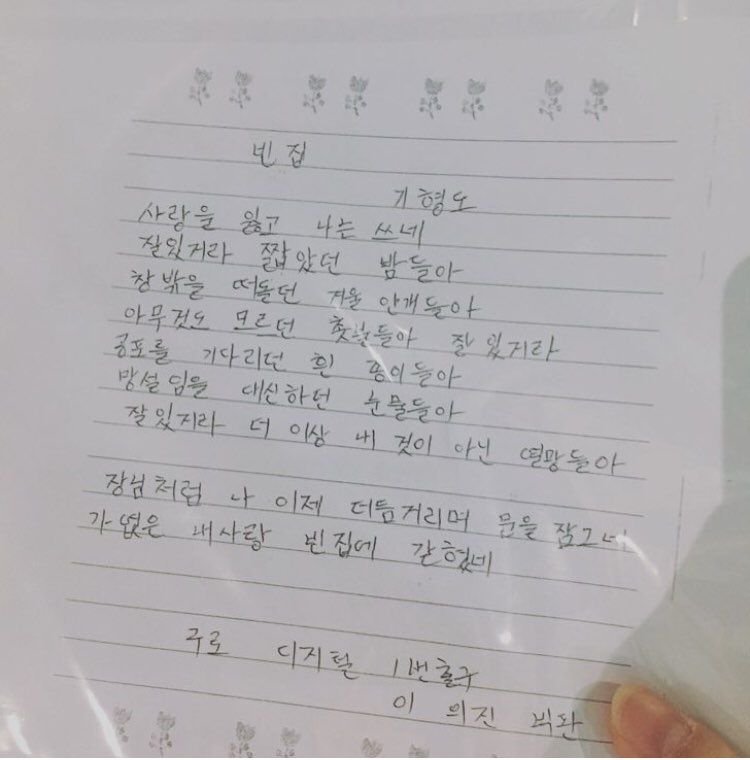 빈 집
기형도
사랑을 잃고 나는 쓰네
잘있거라 짧았던 밤들아
창밖을 떠돌던 겨울 안개들아
아무것도 모르던 촛불들아 잘 있거라
공포를 기다리던 흰 종이들아
망설임을 대신하던 눈물들아
잘있거라 더 이상 내 것이 아닌 열망들아
장님처럼 나 이제 더듬거리며 문을 잠그네
가엾은 내사랑 빈집에 갇혔네
구로 디지털 1번출구
이 의진 빅판